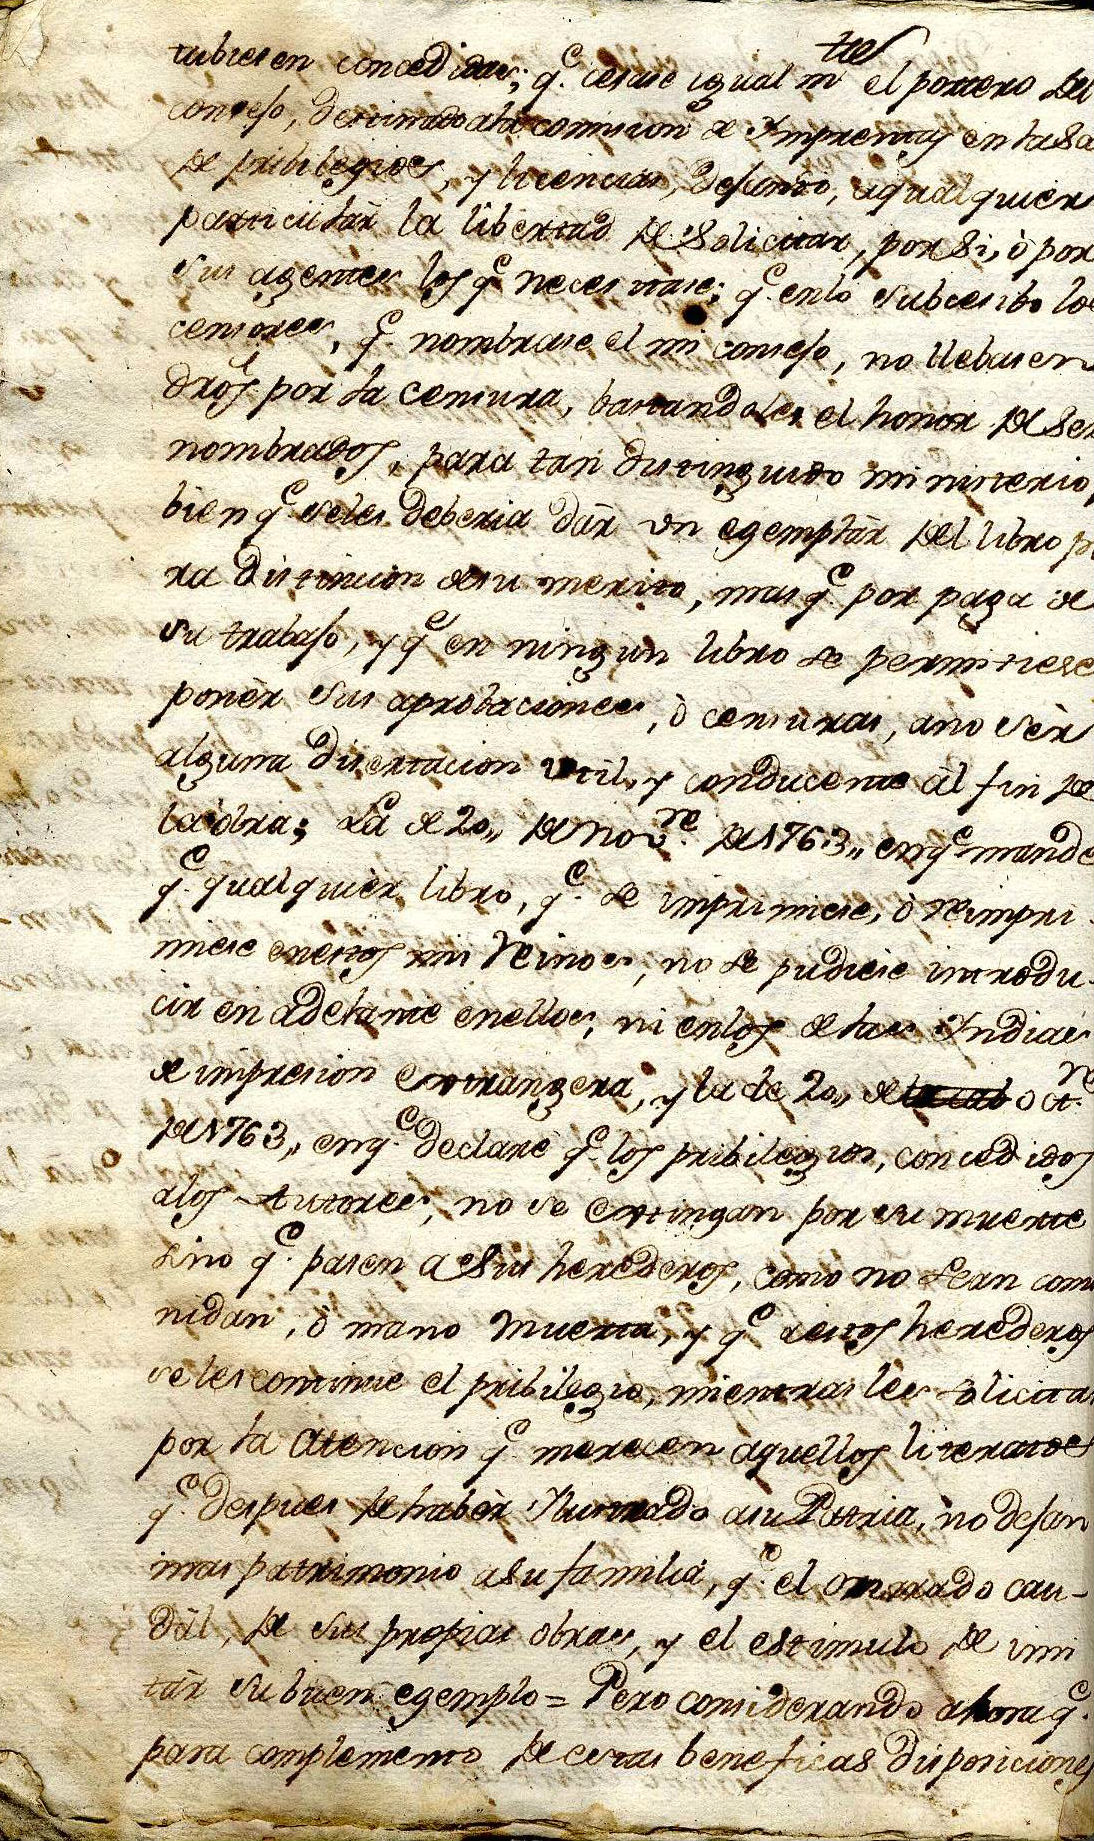 tubiesen concedidas; q.e cesase igual m.te el portero del
consejo, destinado ala comision de Imprentas en la sa
de pribilegios, y licencias, dejando, aqualquier
particular la libertad de Solicitar, por si, ò por
sus agentes los q.e necesitase; q.e enlo subcesibo los
censores, q.e nombrase el mi consejo, no llebasen
dros. por la censura, bastandoles el honor de ser
nombrados, para tan distinguido ministerio,
bien q.e seles deberia dàr un egemplàr del libro pa
ra distincion desu merito, mas q.e por paga de
su trabajo, y q.e en ningun libro se permitiese
ponèr sus aprobaciones, ò censuras, ano sèr
alguna disertacion util, y conducente àl fin de
la òbra; La de 20,, de Nov.re de 1763,, enq.e mande
q.e qualquièr libro, q.e se imprimiese, ò reimpri
miese enestos mis Reinos, no se pudiese introdu-
cir en adelante enellos, ni enlos de las Indias
de impresion extrangera, y la de 20,, de oct.re
de 1763,, enq.e declarè q.e los pribilegios, concedidos
alos Autores, no se extingan por su muerte
sino q.e pasen a Sus herederos, como no sean comu
nidàn, ò mano Muerta, y q.e aestos herederos
seles continue el pribilegio, mientras les solicitan
por la Atencion q.e merecen aquellos literatos
q.e despues de habèr Ilustrado asu Patria, no dejan
mas patrimonio a su familia, q.e el onrrado cau-
dàl, de sus propias obras, y el estimulo de imi
tàr su buen egemplo = Pero considerando ahora q.e
para complemento de estas beneficas disposiciones